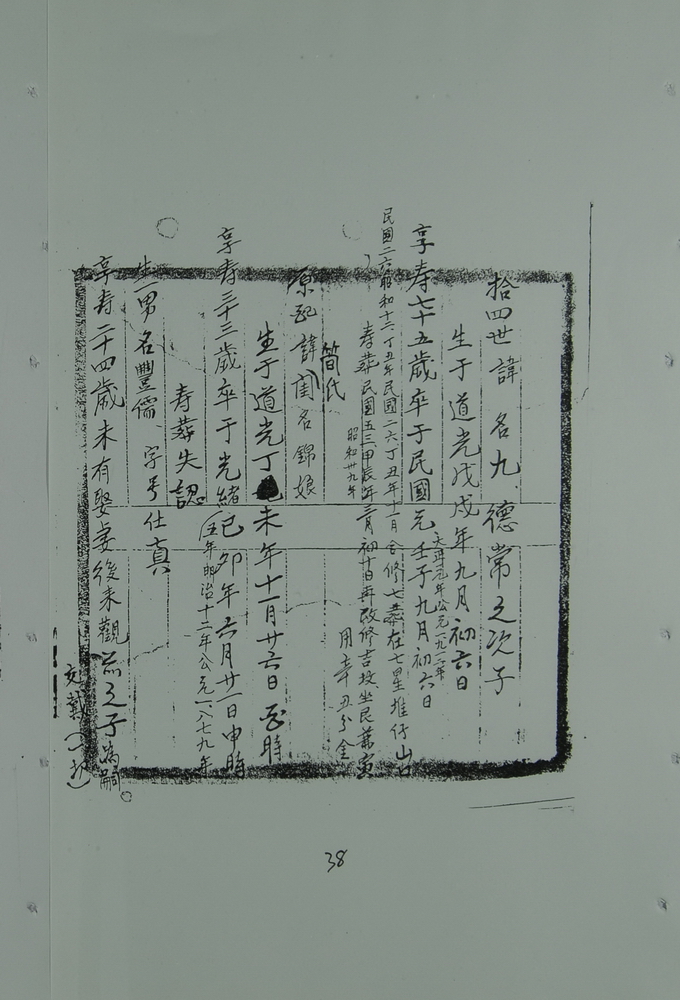 拾四世諱 名九 德常之次子
生于道光戊戌年九月初六日
享壽七十五歲卒于民國元壬子九月初六日
大正元年公元一九一二年
民國二六昭和十二丁丑年民國二六丁丑年十一月合修七墓在七星堆仔山
壽葬民國五三甲辰年三月初十日再改修吉坟坐艮兼寅
昭和卅九年 用辛丑分金
簡氏
原配諱閨名錦娘
生于道光丁未年十一月廿六日 時
享壽三十三歲卒于光緒己卯年六月廿一日申時
五年明治十二年公元一八七九年
壽葬失認
生一男名豐儒 字号仕真
享壽二十四歲未有娶妻後來觀 之子為嗣
38